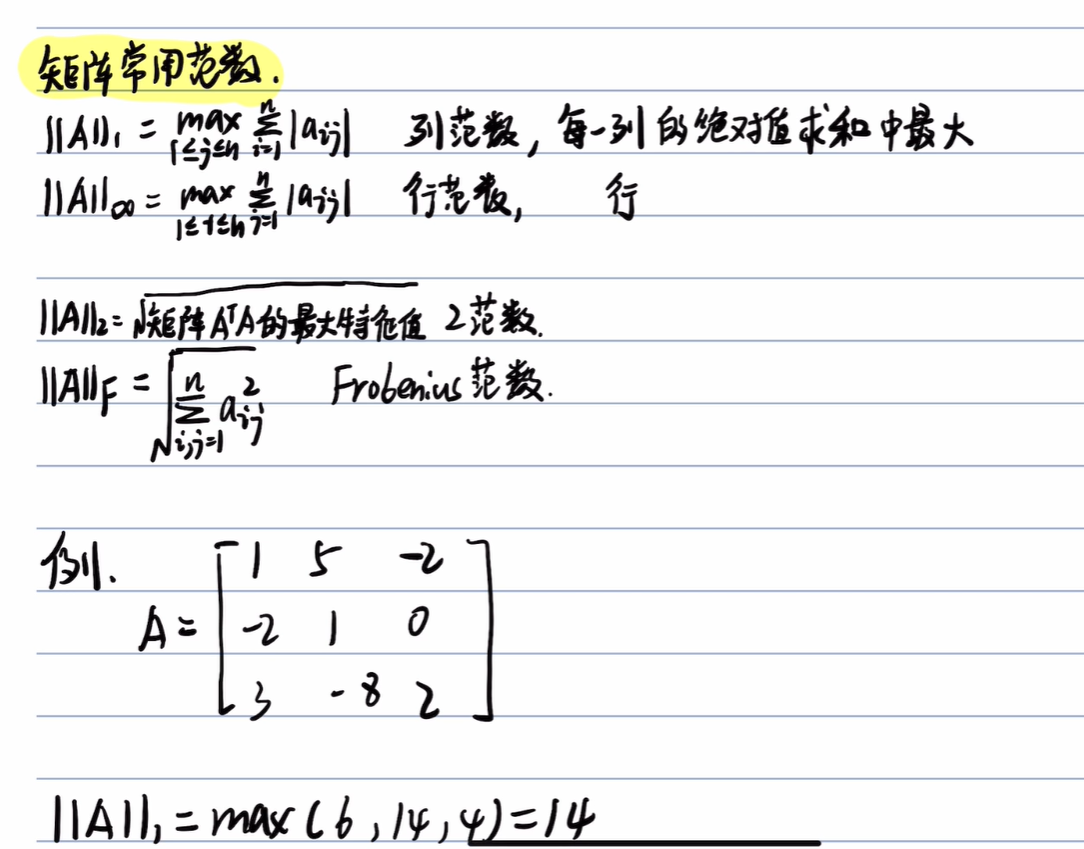 矩阵常用范数.
||A||₁ = max_{1≤j≤n} Σ_{i=1}^{n} |aᵢⱼ| 列范数, 每一列的绝对值求和中最大
||A||∞ = max_{1≤i≤n} Σ_{j=1}^{n} |aᵢⱼ| 行范数, 行
||A||₂ = √矩阵AᵀA的最大特征值 2范数.
||A||_F = √(Σ_{i,j=1}^{n} aᵢⱼ²) Frobenius范数.
例.
A = [ 1 5 -2
-2 1 0
3 -8 2 ]
||A||₁ = max(6, 14, 4) = 14